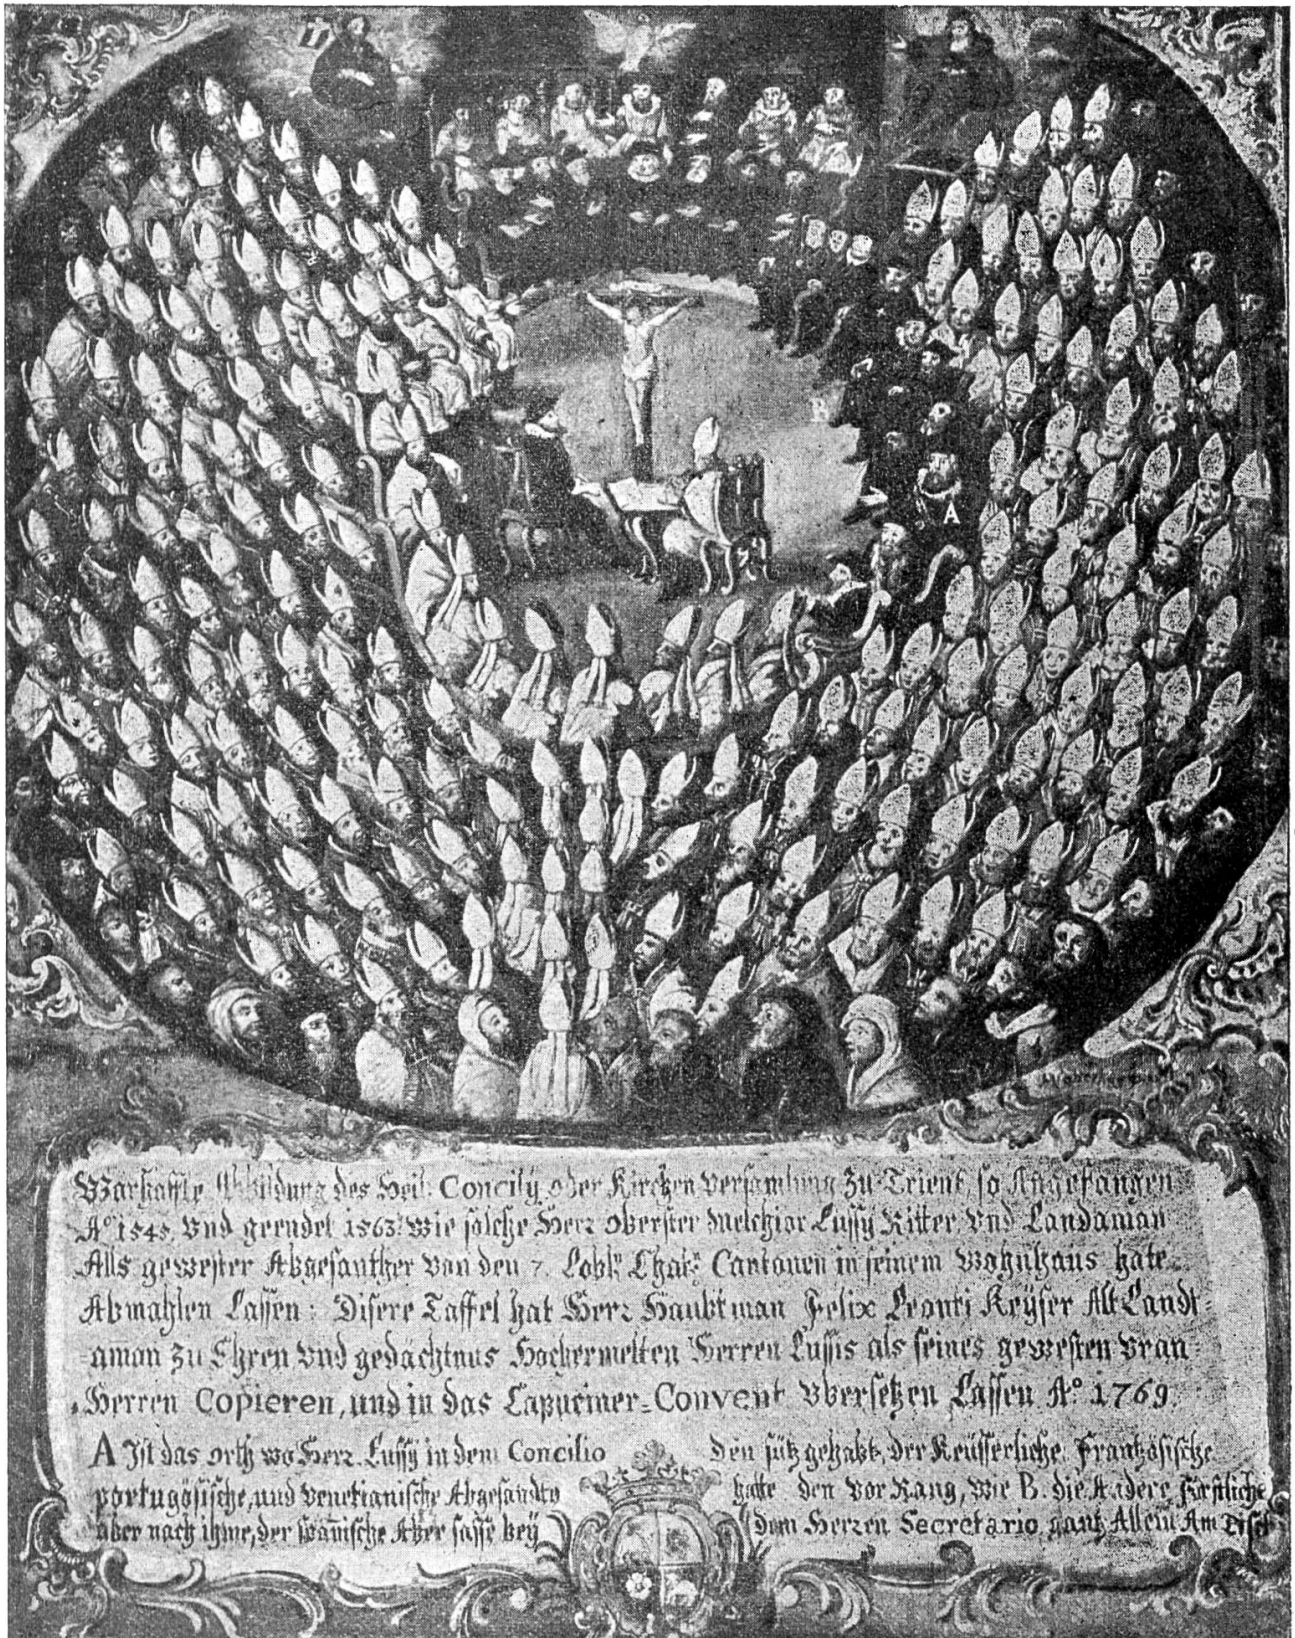 Warhaffte Abbildung des Heil: Concily oder Kirchen versamlung zu Trient, so Angefangen
Aº 1545, Vnd geendet 1563: wie solche Herr Oberster Melchior Lussy Ritter Vnd Landaman
Alls gewester Abgesanther von den 7. Lobl: Cantonen in seinem Wohnhaus hate
Abmahlen Lassen: Disere Taffel hat Herr Haubtman Felix Leonti Keÿser Alt Landt=
=aman zu Ehren Vnd gedächtnus Hochermelten Herren Lussis als seines gewesten Vran=
Herren Copieren, und in das Capuciner=Convent Vbersetzen Lassen Aº 1769.
A Ist das orth wo Herr Lussÿ in dem Concilio den sütz gehabt, der Keüsserliche, Frantzösische
portugösische, und venetianische Abgesandte hatte den Vor Rang, wie B. die Andere, Fürstliche
aber nach ihme, der spanische Aber sasse beÿ dem Herren Secretario, gantz Allein Am Tisch
A
B